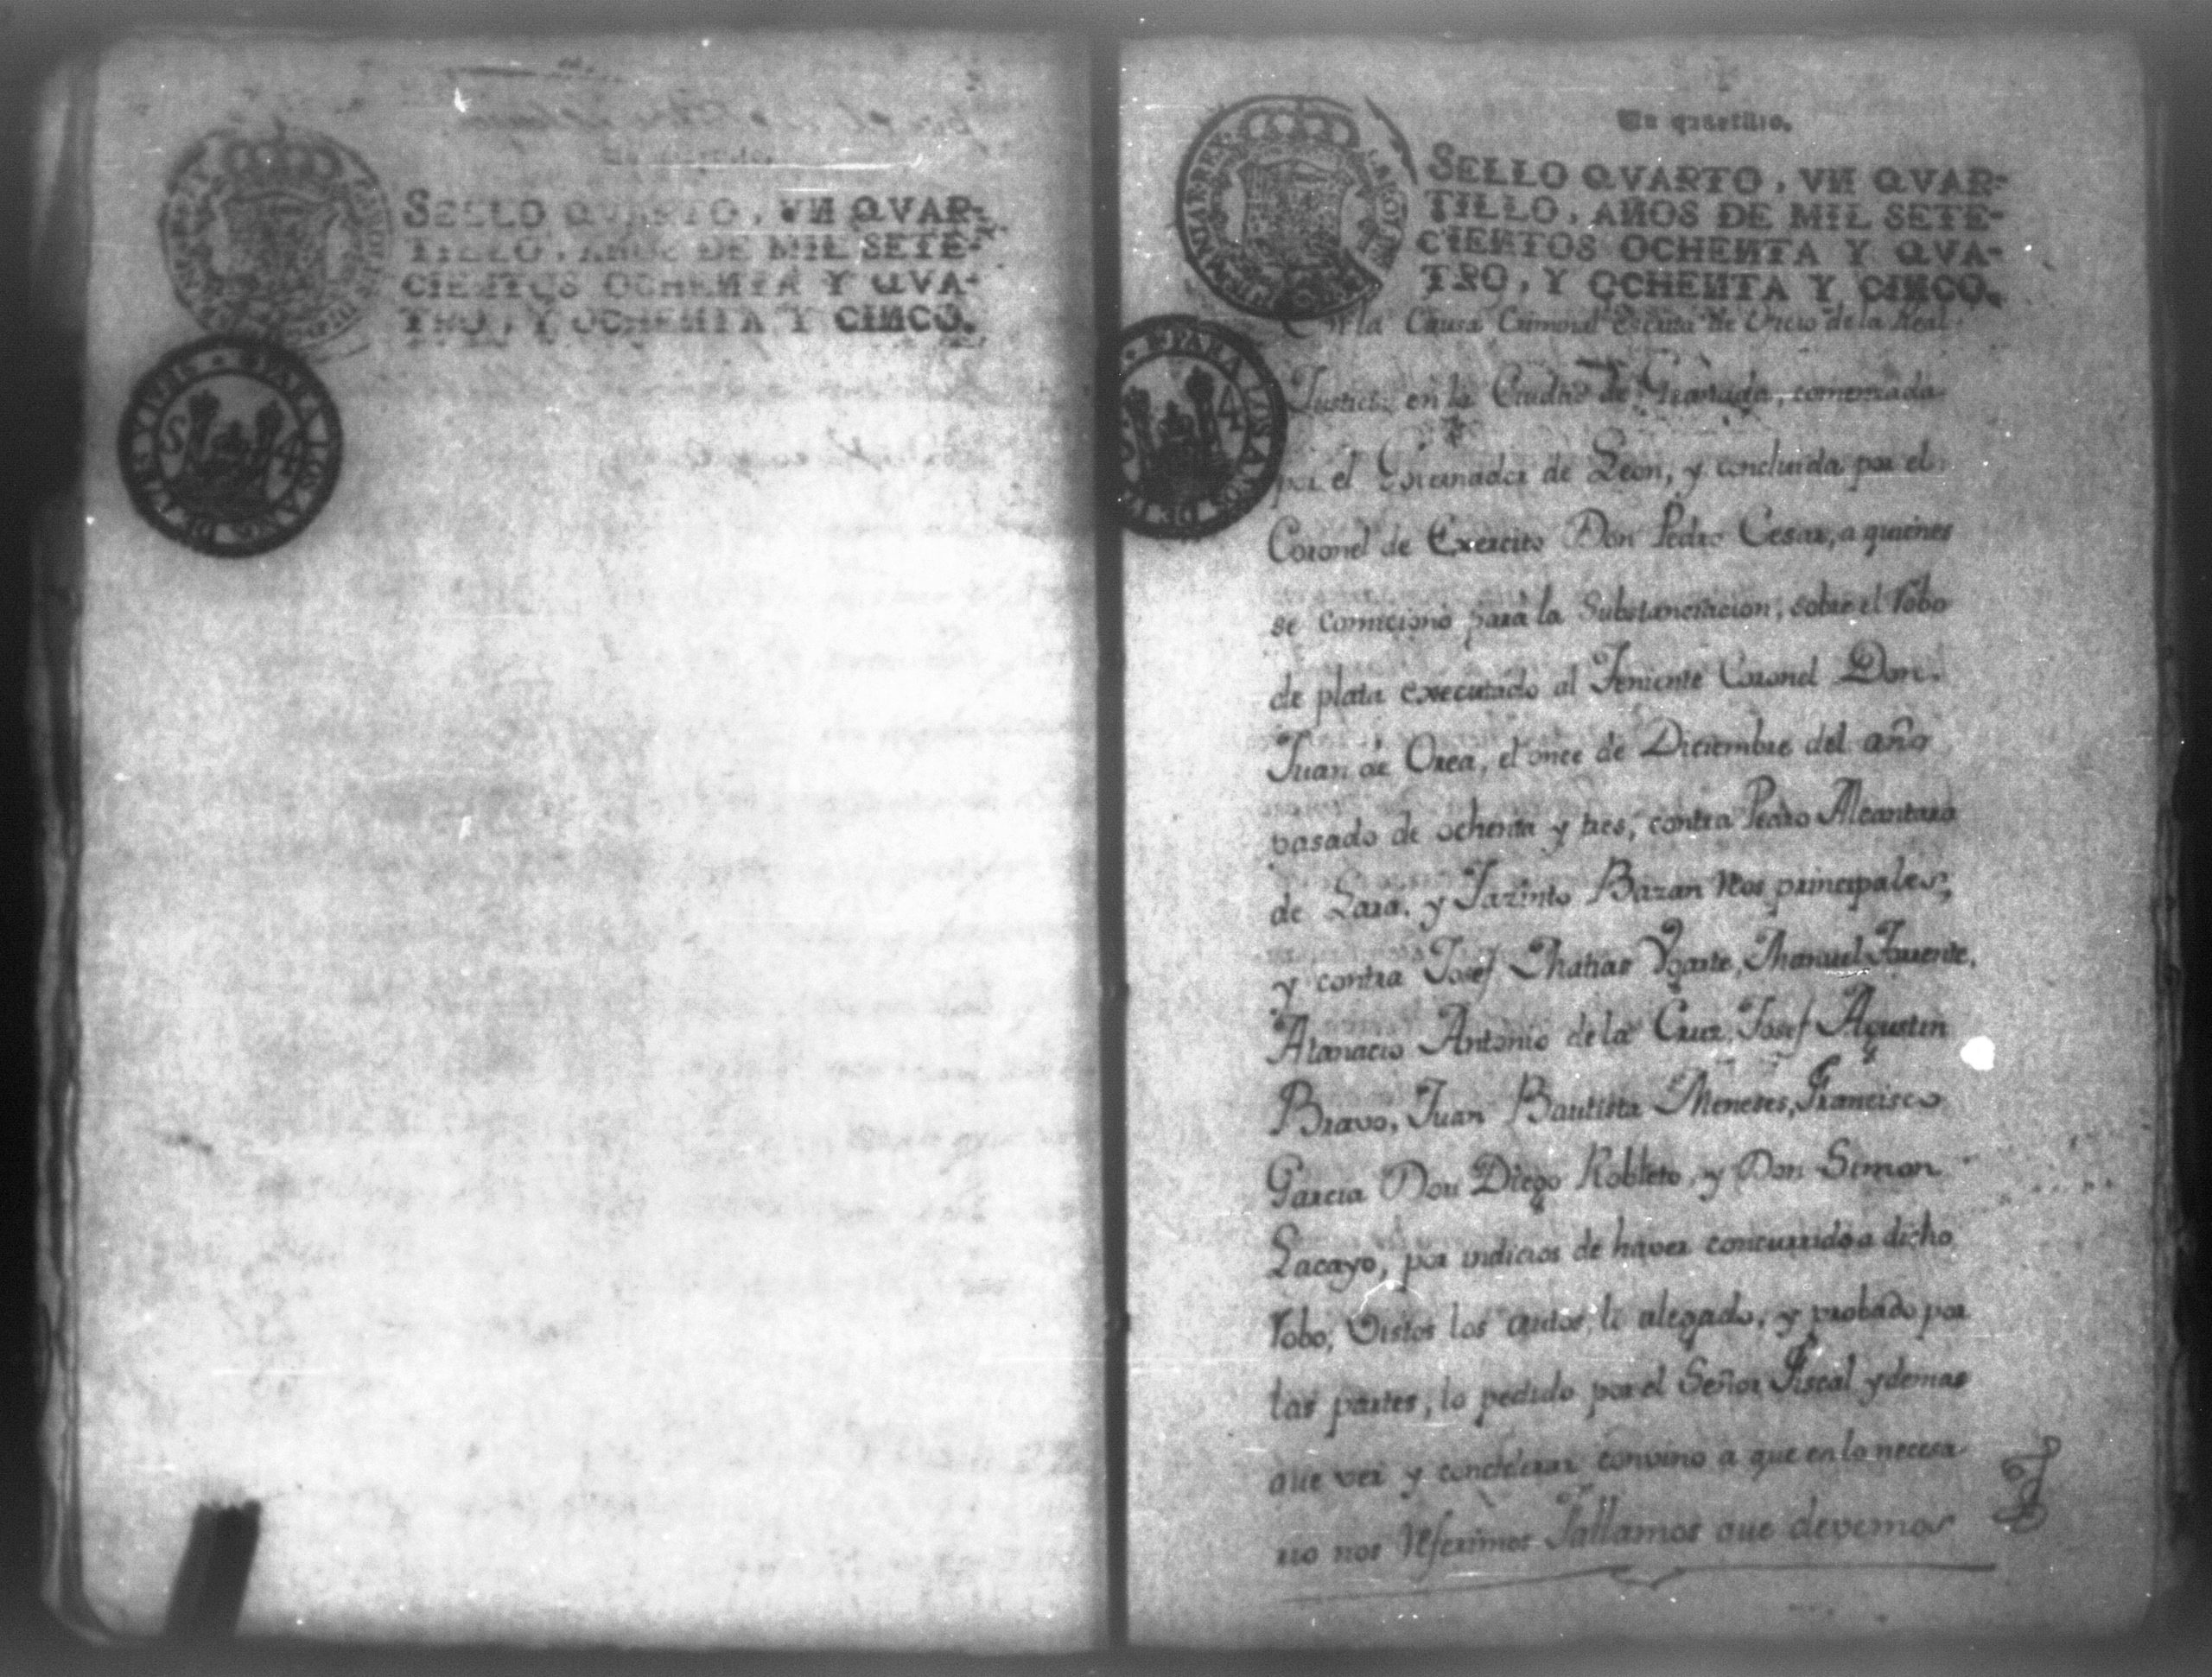 SELLO QVARTO, VN QVAR-
TILLO, AÑOS DE MIL SETE-
CIENTOS OCHENTA Y QVA-
TRO, Y OCHENTA Y CINCO.
Un quartillo.
SELLO QVARTO, VN QVAR-
TILLO, AÑOS DE MIL SETE-
CIENTOS OCHENTA Y QVA-
TRO, Y OCHENTA Y CINCO.
En la Causa Criminal escrita de Oficio de la Real
Justicia en la Ciudad de Granada, comenzada
por el Governador de Leon, y concluida por el
Coronel de Exercito Don Pedro Cesar, a quienes
se comicionó para la Substanciacion, sobre el robo
de plata executado al Teniente Coronel Don
Juan de Orea, el once de Diciembre del año
pasado de ochenta y tres, contra Pedro Alcantara
de Lara, y Jazinto Bazan Reos principales,
y contra Josef Mathias Ygarte, Manuel Torrente,
Atanacio Antonio de la Cruz, Josef Agustin
Bravo, Juan Bautista Meneses, Francisco
Garcia Don Diego Robleto, y Don Simon
Lacayo, por indicios de haver concurrido a dicho
robo; Vistos los autos, lo alegado, y probado por
las partes, lo pedido por el Señor Fiscal y demas
que ver y conciderar convino a que en lo necesa-
rio nos referimos Fallamos que devemos